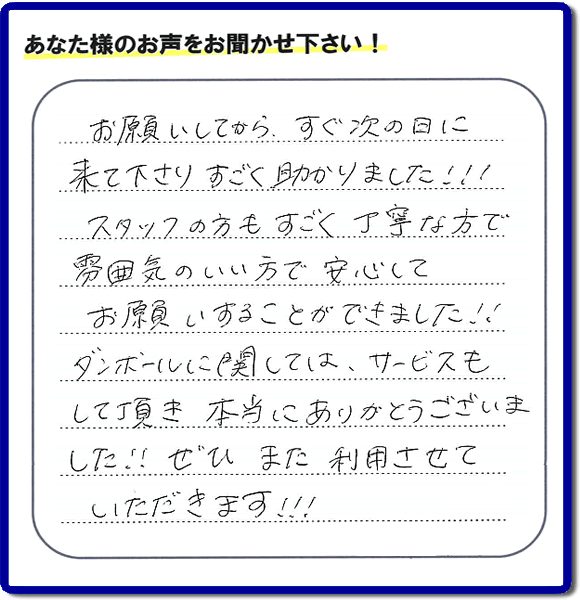 あなた様のお声をお聞かせ下さい！
お願いしてから、すぐ次の日に
来て下さりすごく助かりました!!!
スタッフの方もすごく丁寧な方で
雰囲気のいい方で安心して
お願いすることができました!!
ダンボールに関しては、サービスも
して頂き本当にありがとうございま
した!! ぜひまた利用させて
いただきます!!!